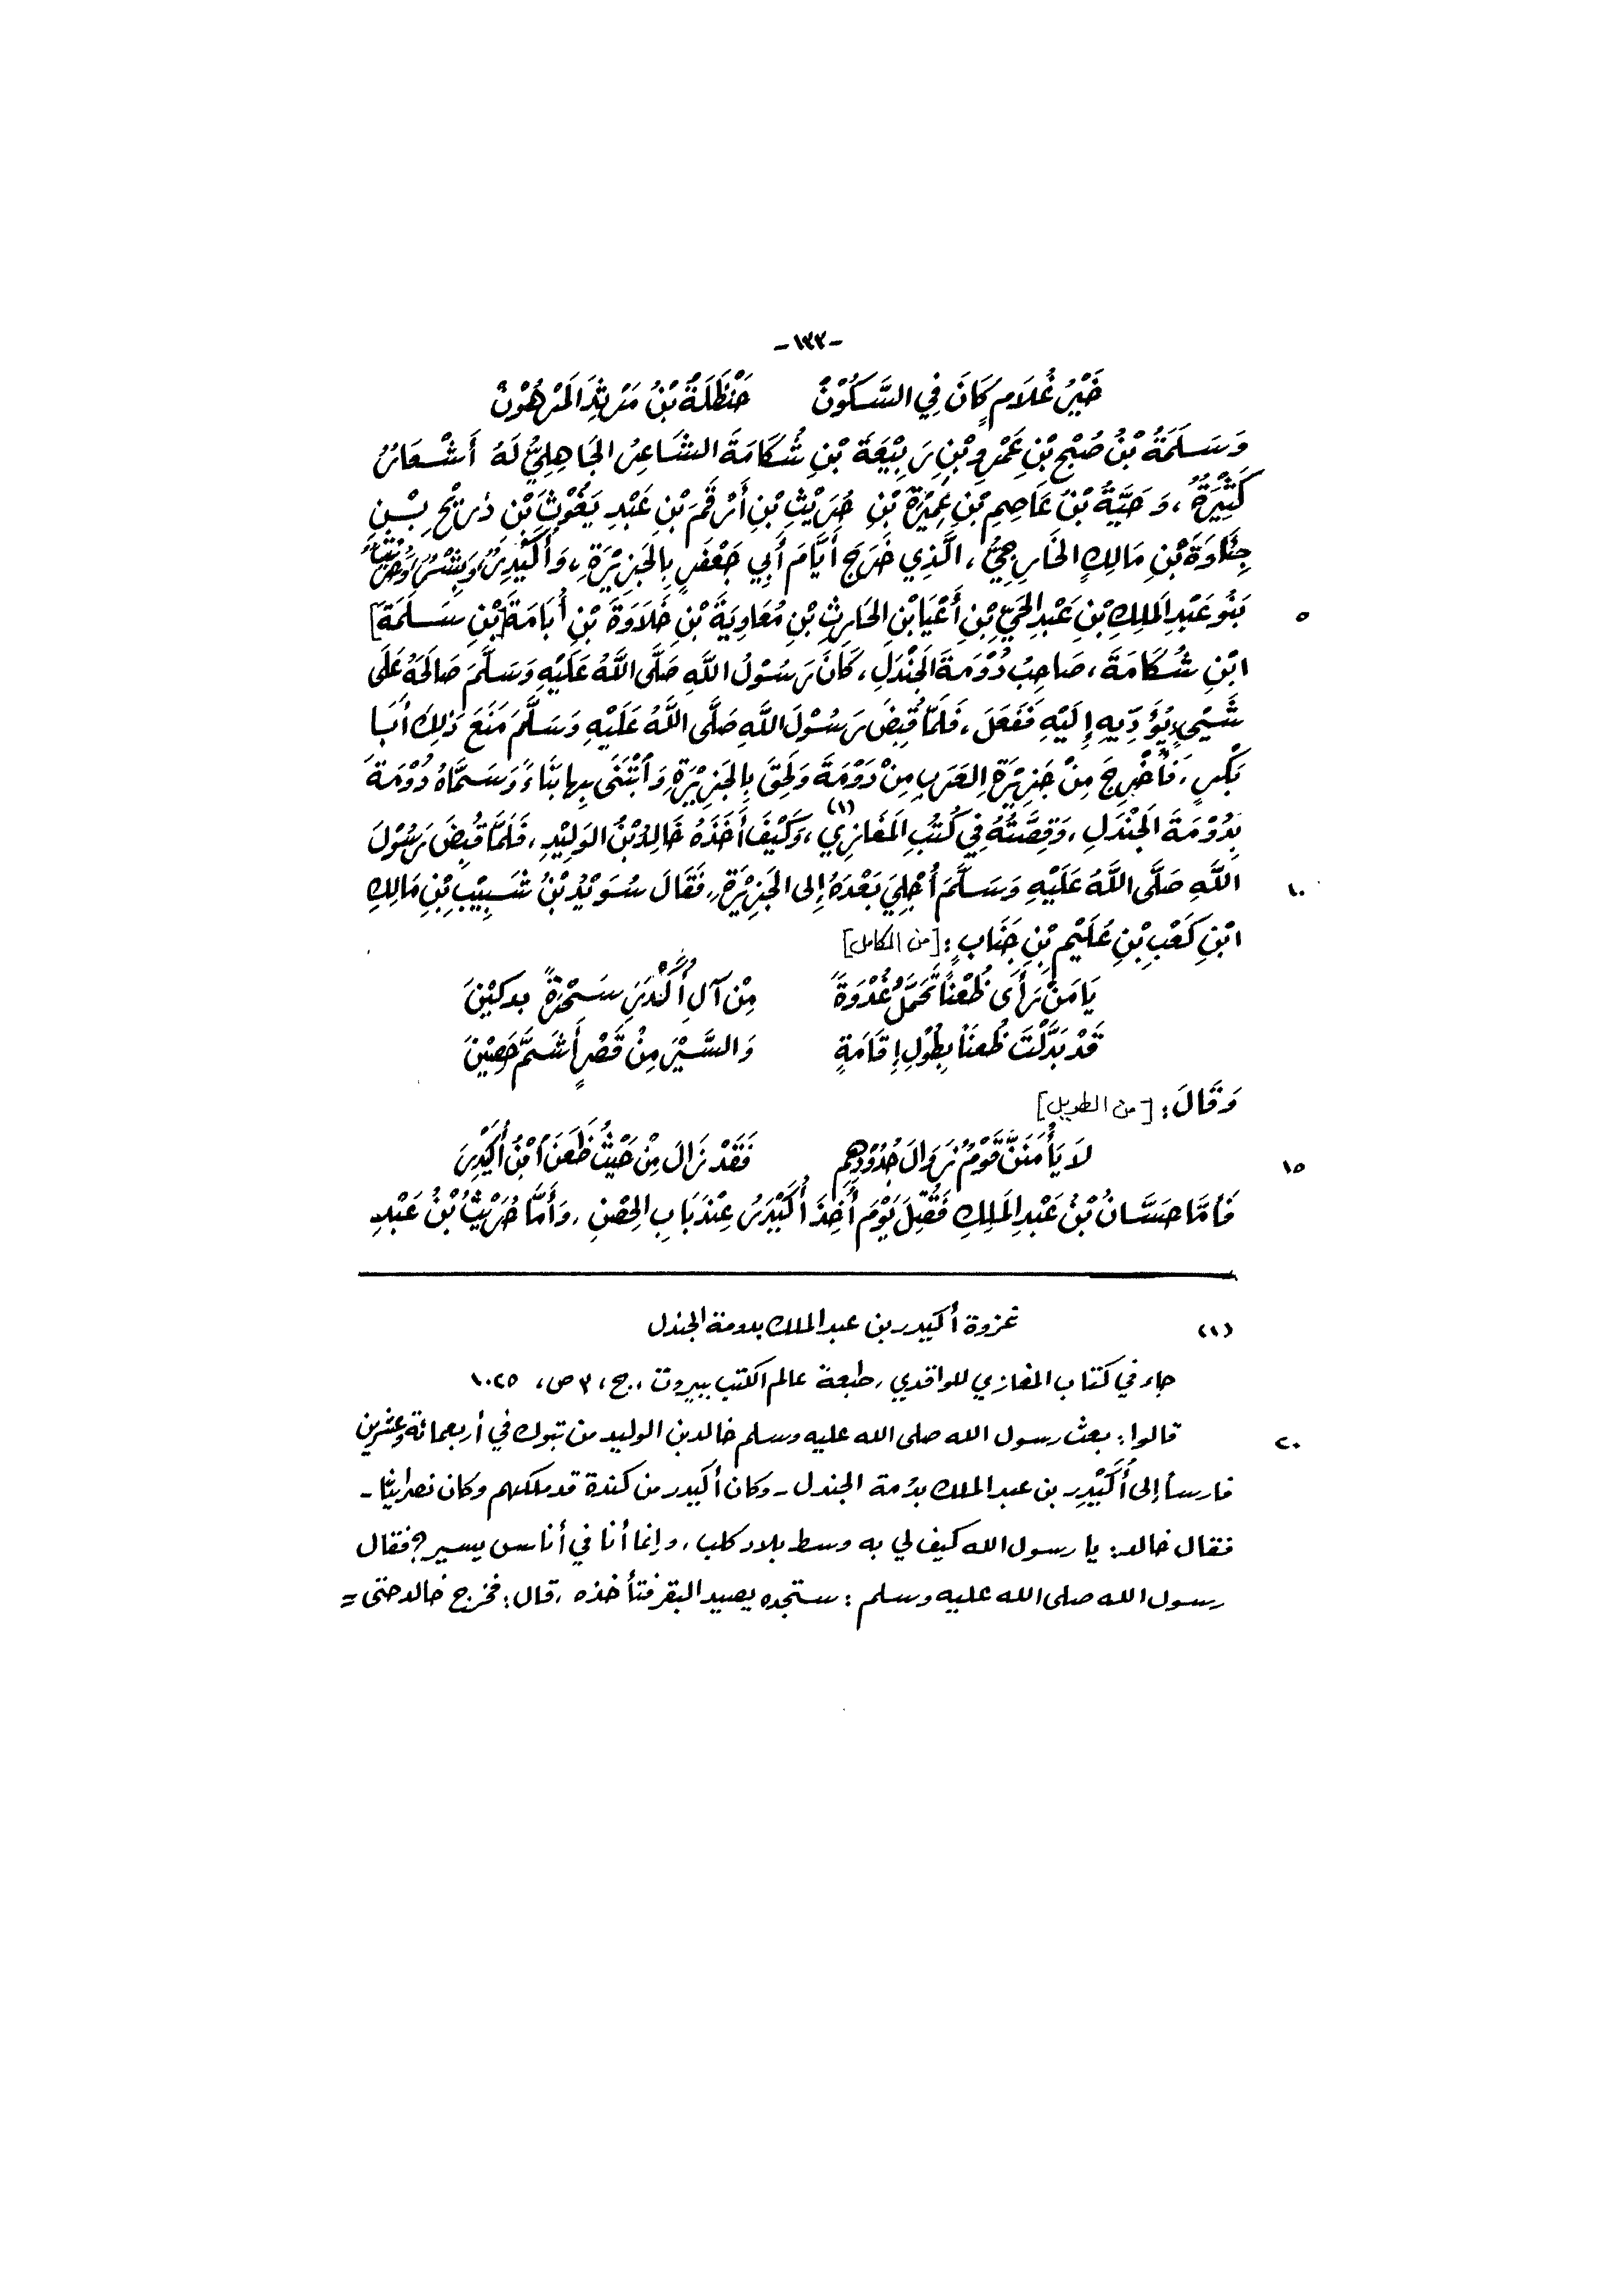 -١٣٣-
خَيْرُ غُلَامٍ كَانَ فِي السَّكُوْنْ حَنْظَلَةُ بْنُ مَرْثِدَ المَرْهُوْنْ
وَسَلَمَةُ بْنُ صُبْحِ بْنِ عَمْرِو بْنِ رَبِيْعَةَ بْنِ شُكَامَةَ الشَّاعِرُ الجَاهِلِيُّ لَهُ أَشْعَارٌ
كَثِيْرَةٌ، وَحَيَّةُ بْنُ عَاصِمِ بْنِ عَمِيْرَةَ بْنِ حُرَيْثِ بْنِ أَرْقَمَ بْنِ عَبْدِ يَغُوْثَ بْنِ ذُرَيْحِ بْنِ
جِئَاوَةَ بْنِ مَالِكٍ الخَارِجِيُّ، الَّذِي خَرَجَ أَيَّامَ أَبِي جَعْفَرٍ بِالجَزِيْرَةِ، وَأُكَيْدِرٌ وَبِشْرٌ وَحُرَيْثٌ
بَنُو عَبْدِ المَلِكِ بْنِ عَبْدِ الحَيِّ بْنِ أَعْيَا بْنِ الحَارِثِ بْنِ مُعَاوِيَةَ بْنِ خَلَاوَةَ بْنِ أُبَامَةَ [بْنِ سَلَمَةَ] ٥
ابْنِ شُكَامَةَ، صَاحِبُ دُوْمَةَ الجَنْدَلِ، كَانَ رَسُوْلُ اللَّهِ صَلَّى اللَّهُ عَلَيْهِ وَسَلَّمَ صَالَحَهُ عَلَى
شَيْءٍ يُؤَدِّيهِ إِلَيْهِ فَفَعَلَ، فَلَمَّا قُبِضَ رَسُوْلَ اللَّهِ صَلَّى اللَّهُ عَلَيْهِ وَسَلَّمَ مَنَعَ ذَلِكَ أَبَا
بَكْرٍ، فَأُخْرِجَ مِنْ جَزِيْرَةِ العَرَبِ مِنْ دَوْمَةَ وَلَحِقَ بِالجَزِيْرَةِ وَابْتَنَى بِهَا بَنَاءً وَسَمَّاهُ دُوْمَةَ
بِدُوْمَةَ الجَنْدَلِ، وَقِصَّتُهُ فِي كُتُبِ المَغَازِي(١)، وَكَيْفَ أَخَذَهُ خَالِدُ بْنُ الوَلِيْدِ، فَلَمَّا قُبِضَ رَسُوْلَ
اللَّهِ صَلَّى اللَّهُ عَلَيْهِ وَسَلَّمَ أُجْلِيَ بَعْدَهُ إِلى الجَزِيْرَةِ، فَقَالَ سُوَيْدُ بْنُ شَبِيْبِ بْنِ مَالِكِ ١٠
ابْنِ كَعْبِ بْنِ عُلَيْمِ بْنِ جَنَابٍ: [من الكامل]
يَا مَنْ رَأَى ظُعْنًا تَحَمَّلُ غُدْوَةً مِنْ آلِ أُكْدَرَ سَحْرَةً
قَدْ بَدَّلْتَ ظُعنَاً بِطُوْلِ إِقَامَةٍ وَالسَّيْرَ مِنْ قَصْرٍ أَشَمَّ حَصِيْنَ
وَقَالَ: [من الطويل]
لَا يَأْمَنَنَّ قَوْمٌ زَوَالَ جُدُوْدِهِمْ فَقَدْ زَالَ مِنْ حَيْثُ ظَعَنَ ابْنُ أُكَيْدِرَ ١٥
فَأَمَّا حَسَّانُ بْنُ عَبْدِ المَلِكِ فَقُتِلَ يَوْمَ أُخِذَ أُكَيْدَرُ عِنْدَ بَابِ الحِصْنِ، وَأَمَّا حُرَيْثُ بْنُ عَبْدِ
(١) غزوة أكيدر بن عبد الملك بدومة الجندل
جاء في كتاب المغازي للواقدي، طبعة عالم الكتب ببيروت، ج، ٣ ص، ١٠٢٥
قالوا: بعث رسول الله صلى الله عليه وسلم خالد بن الوليد من تبوك في أربعمائة وعشرين ٢٠
فارساً إلى أُكَيْدِر بن عبد الملك بدُمة الجندل - وكان أكيدر من كندة قد ملكهم وكان نصرانيّا -
فقال خالد: يا رسول الله كيف لي به وسط بلاد كلب، وإنما أنا في أناس يسير؟ فقال
رسول الله صلى الله عليه وسلم: ستجده يصيد البقر فتأخذه، قال: فخرج خالد حتى =